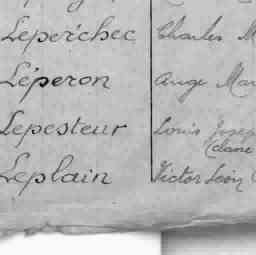 Leperchec Charles M
Léperon Ange Mar
Lepesteur Louis Josep
(dane
Leplain Victor Léon